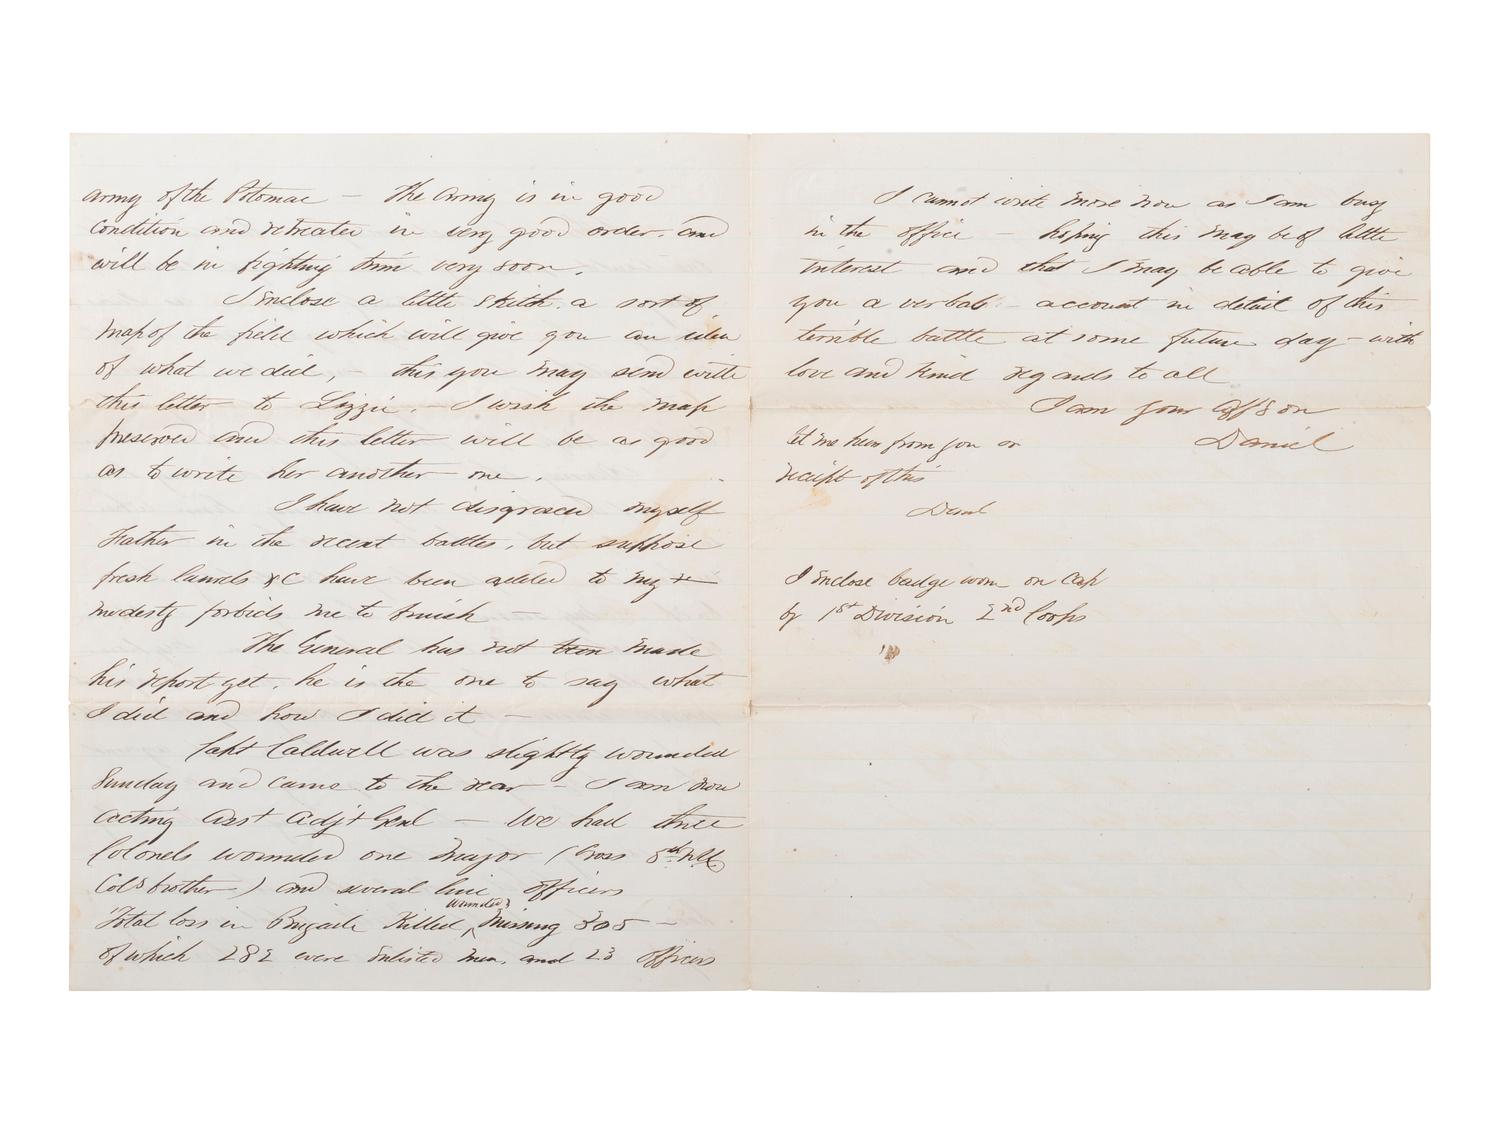 army of the Potomac – The army is in good
condition and retreated in very good order. and
will be in fighting trim very soon.
I enclose a little sketch. a sort of
map of the field which will give you an idea
of what we did, – this you may send with
this letter to Lizzie. – I wish the map
preserved and this letter will be as good
as to write her another one.
I have not disgraced myself
Father in the recent battles, but suppose
fresh laurels &c have been added to my
modesty forbids me to finish –
The General has not been made
his report yet. he is the one to say what
I did and how I did it –
Capt Caldwell was slightly wounded
Sunday and came to the rear – I am now
acting Asst Adjt Genl – We had three
Colonels wounded one Major (Cross 5th NH
Cols brother) and several line officers
Total loss in Brigade Killed, wounded & Missing 305 –
of which 282 were Enlisted Men, and 23 officers
I cannot write more now as I am busy
in the office – hoping this may be of little
interest and that I may be able to give
you a verbal – account in detail of this
terrible battle at some future day – with
love and kind regards to all
I am your aff Son
Daniel
let me hear from you on
receipt of this
Danl
I enclose badge worn on Cap
by 1st Division 2nd Corps